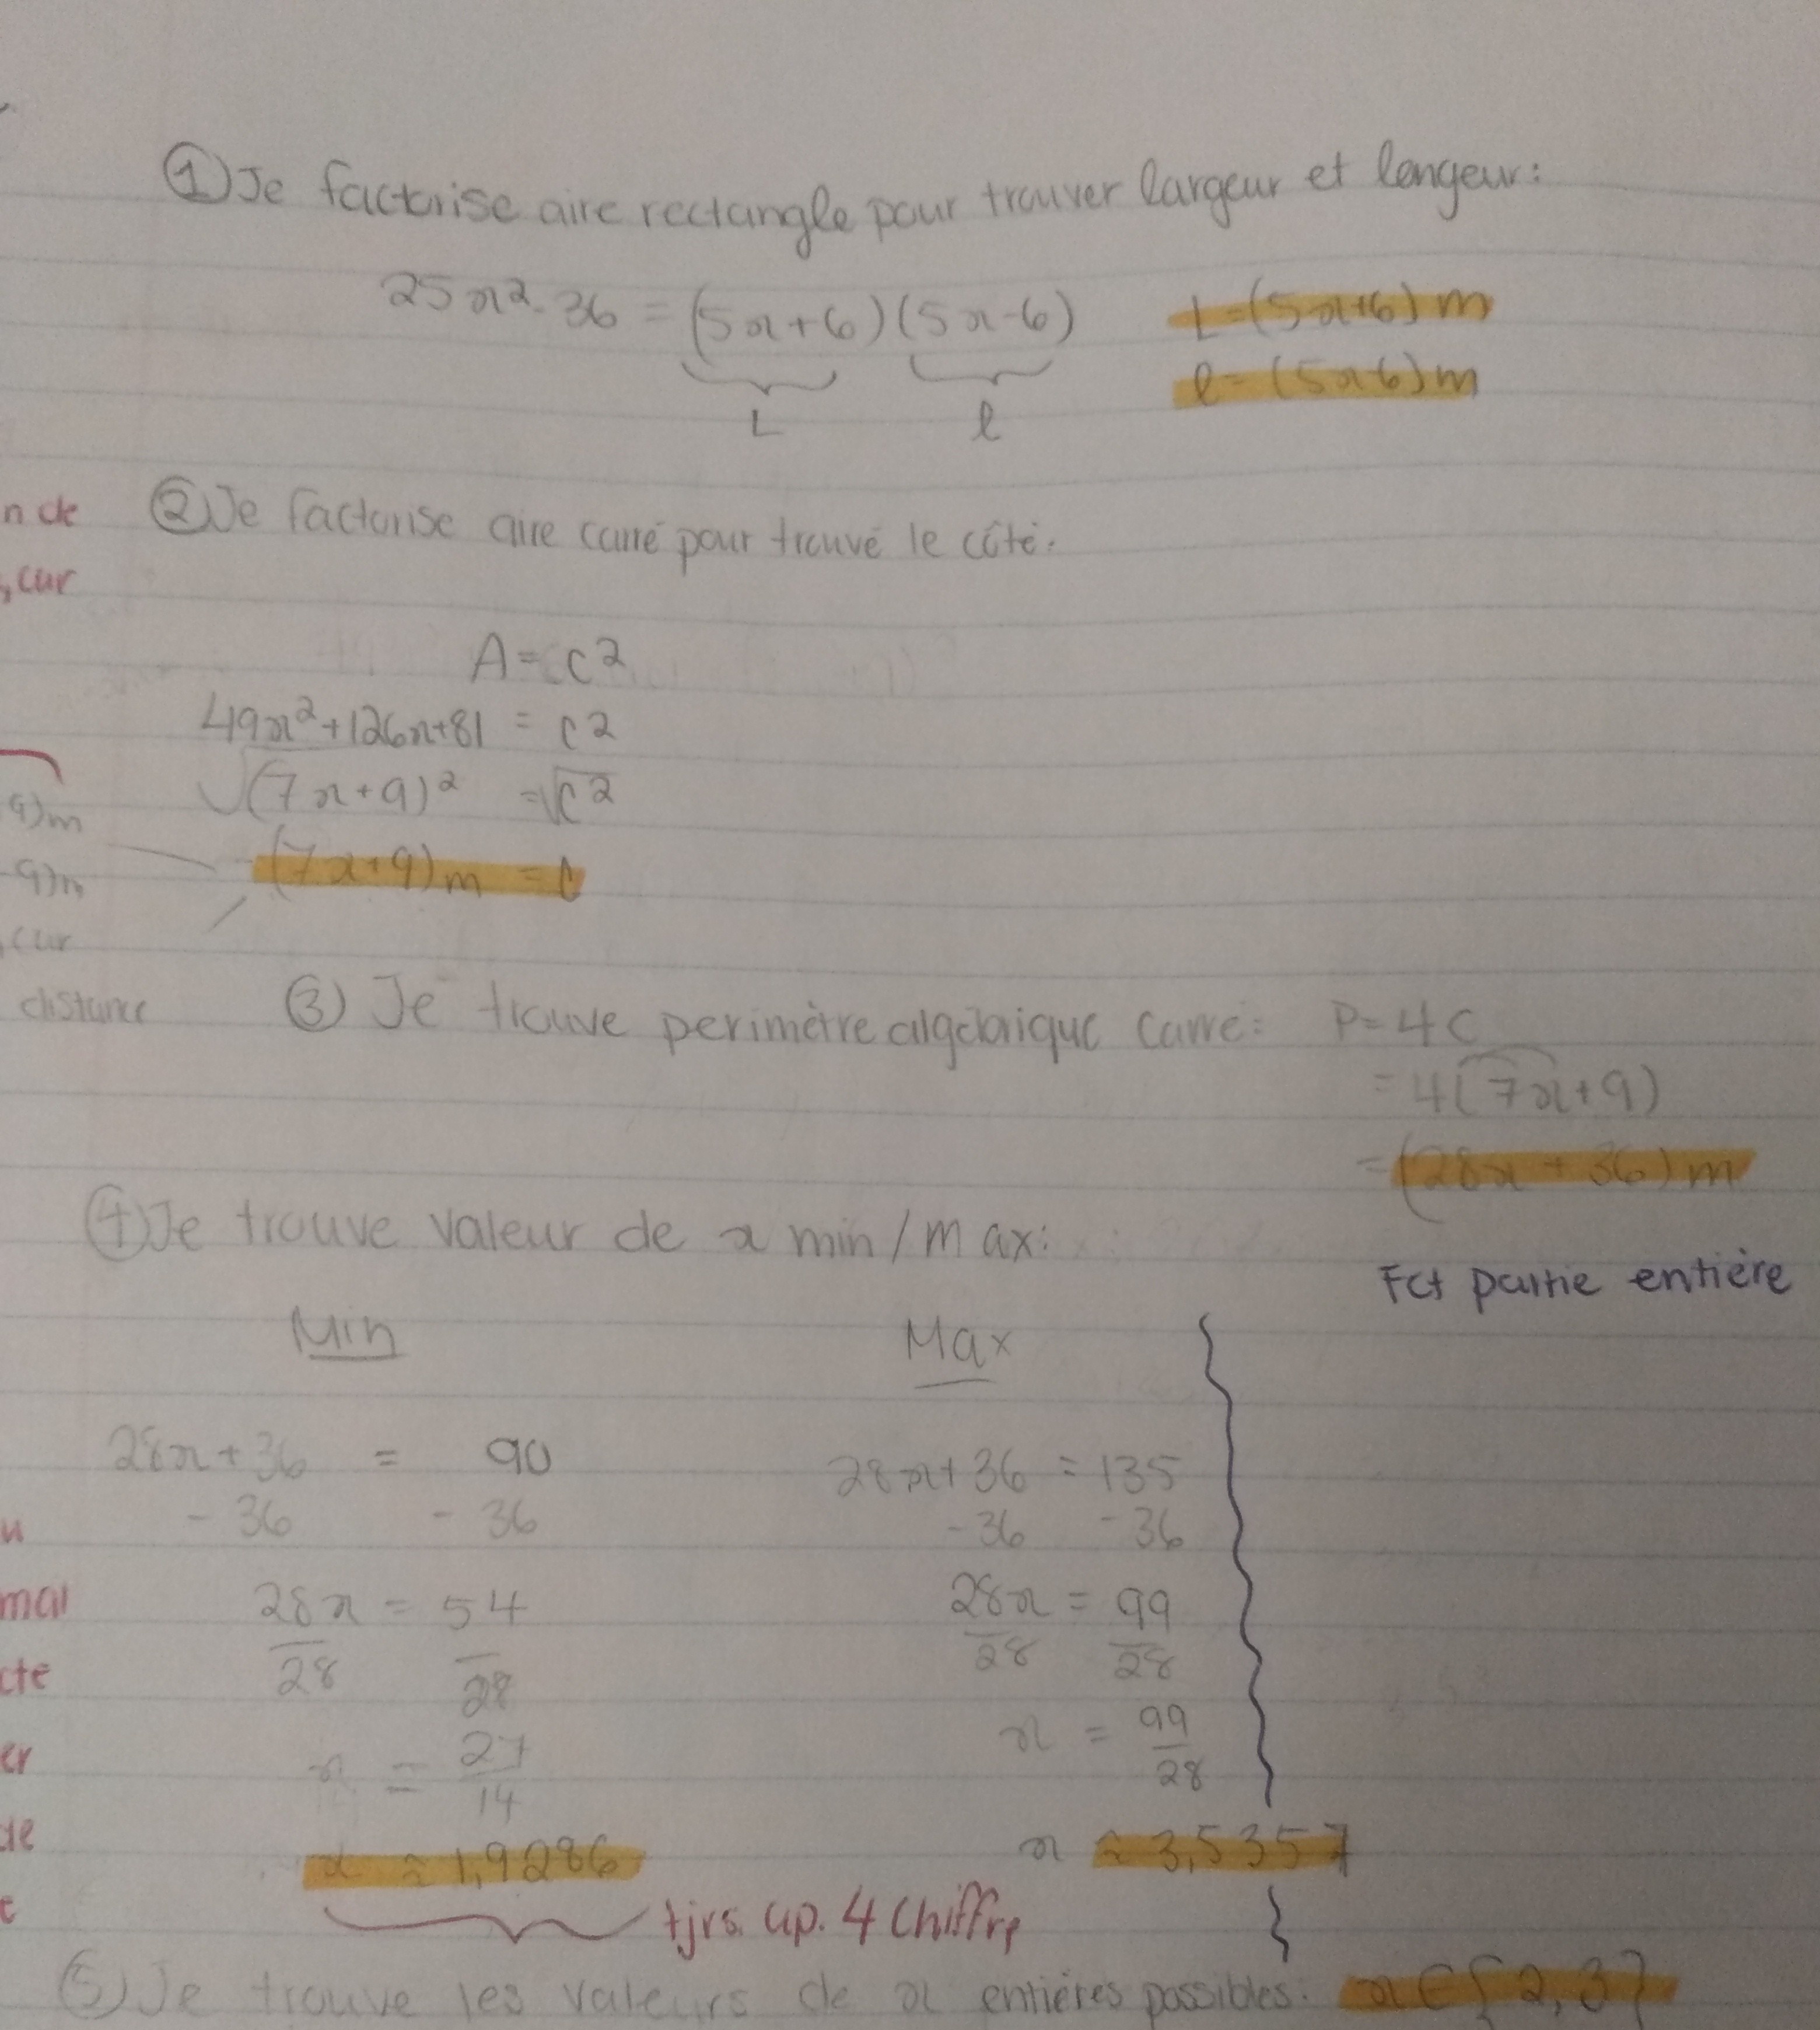 ① Je factorise aire rectangle pour trouver largeur et longeur:
25x² - 36 = (5x+6)(5x-6) L=(5x+6)m
l=(5x-6)m
L l
② Je factorise aire carré pour trouvé le côté.
n de
, car
A = c²
49x²+126x+81 = c²
√(7x+9)² = √c²
9)m
(7x+9)m = c
9)m
, car
distance
③ Je trouve perimètre algébrique carré: P=4c
= 4(7x+9)
= (28x + 36)m
④ Je trouve valeur de x min/max:
Fct partie entière
Min Max
28x+36 = 90 28x+36 = 135
- 36 - 36 - 36 - 36
u
28x = 54 28x = 99
mal
28 28 28 28
cte
x = 27/14 x = 99/28
er
x ≈ 1,9286 x ≈ 3,5357
de
tjrs. ap. 4 chiffre
t
⑤ Je trouve les valeurs de x entières possibles: x ∈ {2,3}